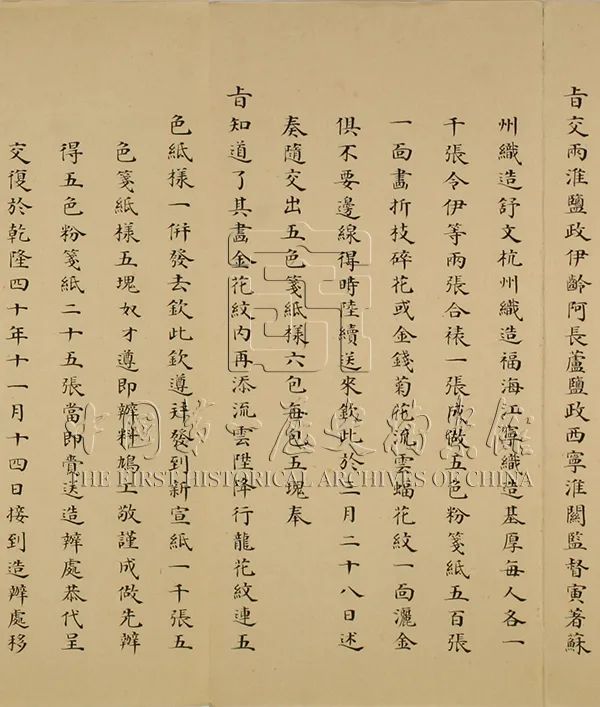 旨交兩淮鹽政伊齡阿長蘆鹽政西寧淮關監督寅著蘇
州織造舒文杭州織造福海江寧織造基厚每人各一
千張令伊等兩張合裱一張成做五色粉箋紙五百張
一面畫折枝碎花或金錢菊花流雲蝠花紋一面灑金
俱不要邊線得時陸續送來欽此於三月二十八日述
奏隨交出五色箋紙樣六包每包五塊奉
旨知道了其畫金花紋內再添流雲陞降行龍花紋連五
色紙樣一併發去欽此欽遵祥發到新宣紙一千張五
色箋紙樣五塊奴才遵即辦料鳩工敬謹成做先辦
得五色粉箋紙二十五張當即賫送造辦處恭代呈
交復於乾隆四十年十一月十四日接到造辦處移
中國第一歷史檔案館
THE FIRST HISTORICAL ARCHIVES OF CHINA